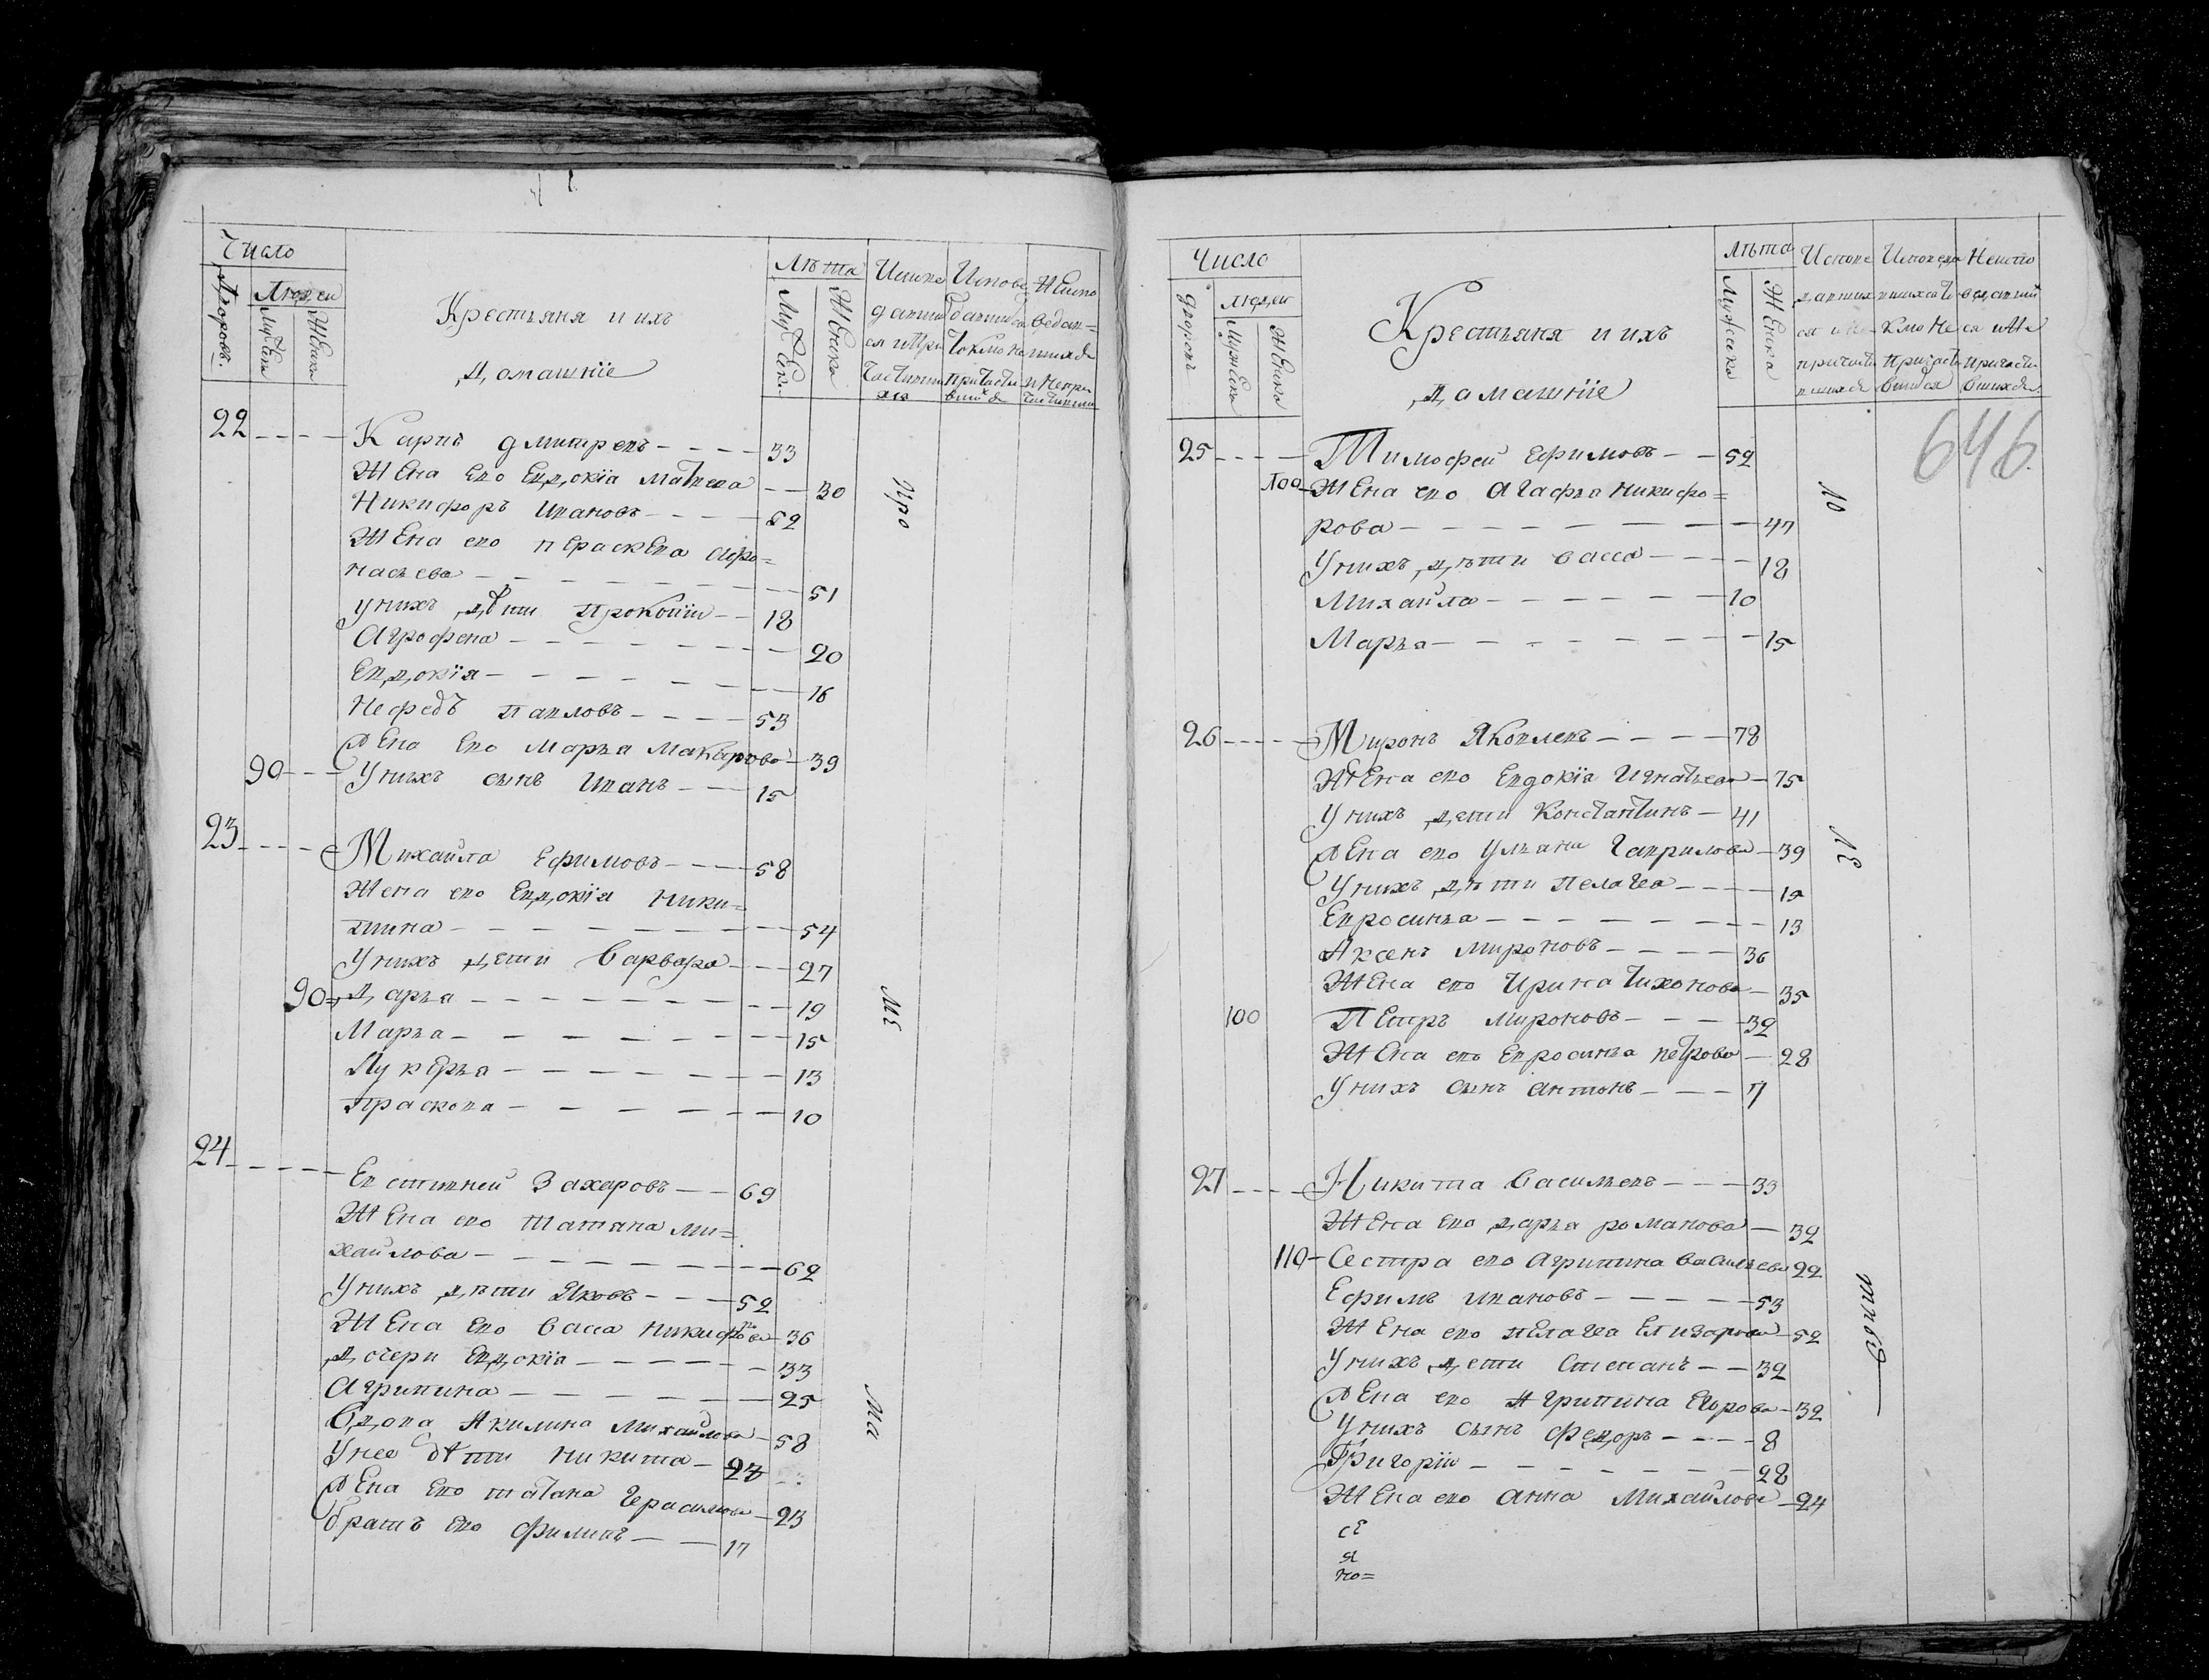 Число
Лѣта
Дворовъ.
Людей
Мужеска
Женска
Крестьяня и ихъ
Домашніе
Мужеска
Женска
22 Карпъ Дмитревъ 33
Жена ево Евдокія Матвева 30
Никифоръ Ивановъ 52
Жена ево Пераскева Афо=
насьева 51
У нихъ дѣти Прокопіи 18
Агрофена 20
Евдокія 16
Нефедъ Павловъ 53
Жена ево Марья Макарова 39
90 У нихъ сынъ Иванъ 15
Про
23 Михайла Ефимовъ 58
Жена ево Евдокія Ники=
тина 54
У нихъ дети Варвара 27
90 Дарья 19
Марья 15
Лукерья 13
Прасковa 10
МЕ
24 Евстигней Захаровъ 69
Жена ево Татяна Ми=
хайлова 62
У нихъ дѣти Яковъ 52
Жена ево Васса Никифрова 36
Дочери Евдокія 33
Агрипина 25
Вдова Акилина Михайлова 58
У нее дѣти Никита 27
Жена ево Татана Герасимова 23
Братъ ево Филипъ 17
Ма
Число
Лѣта
Дворовъ
Людей
Мужеска
Женска
Крестьяня и ихъ
Дамашніе
Мужеска
Женска
646
25 Тимофей Ефимовъ 52
100 Жена ево Агафья Никифо=
рова 47
У нихъ дѣти Васса 18
Михайла 10
Марья 15
ЛО
26 Миронъ Яковлевъ 78
Жена ево Евдокіа Игнатьева 75
У нихъ дети Константинъ 41
Жена ево Ульяна Гаврилова 39
У нихъ дѣти Пелагеа 15
Евросинья 13
Аксенъ Мироновъ 36
Жена ево Ирина Тихонова 35
100 Петръ Мироновъ 32
Жена евъ Евросинья Петрова 28
У нихъ сынъ Антонъ 7
ЛЕ
27 Никита Васильевъ 33
Жена ево Дарья Романова 32
110 Сестра ево Агрипина Васильева 22
Ефимъ Ивановъ 53
Жена ево Пелагеа Елизарова 52
У нихъ дети Степанъ 32
Жена ево Агрипина Егорова 32
У нихъ сынъ Федоръ 8
Григоріи 28
Жена ево Анна Михайлова 24
сЕ
я
но=